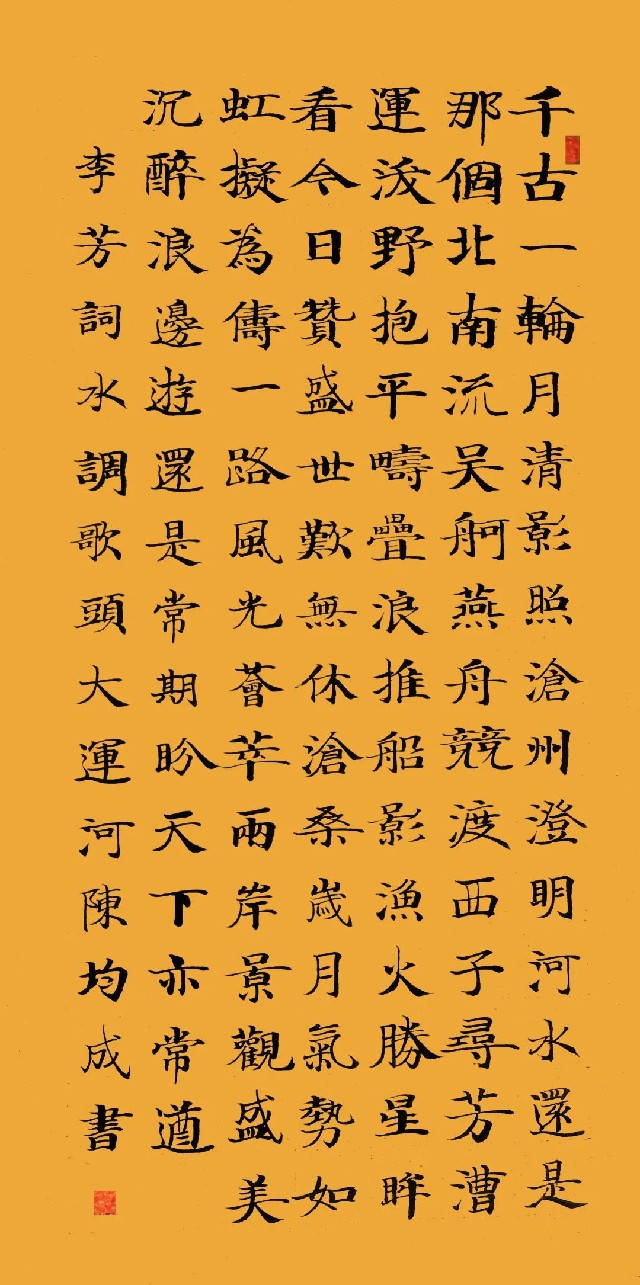 千古一輪月清影照滄州澄明河水還是
那個北南流吴舸燕舟競渡西子尋芳漕
運漫野抱平疇疊浪推船影漁火勝星眸
看今日贊盛世歎無休滄桑歲月氣勢如
虹擬為儔一路風光薈萃兩岸景觀盛美
沉醉浪邊遊還是常期盼天下亦常遒
李芳詞水調歌頭大運河陳均成書